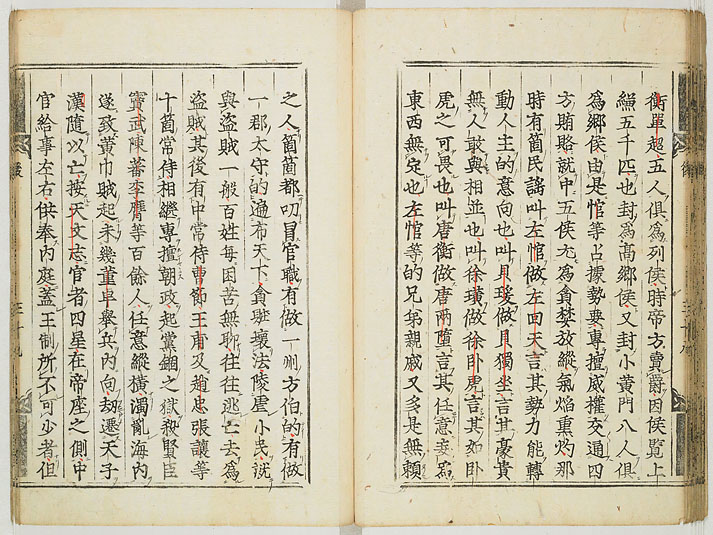 衡單超五人俱爲列侯時帝方賣爵因侯覽上
縑五千匹也封爲高鄉侯又封小黃門八人俱
爲鄉侯由是悺等占據勢要專擅威權交通四
方賄賂就中五侯尤爲貪婪放縱氣焰熏灼那
時有箇民謠叫左悺做左回天言其勢力能轉
動人主的意向也叫具瑗做具獨坐言其豪貴
無人敢與相並也叫徐璜做徐卧虎言其如卧
虎之可畏也叫唐衡做唐兩墮言其任意妄爲
東西無定也左悺等的兄弟親戚又多是無賴
之人箇箇都叨冒官職有做一州方伯的有做
一郡太守的遍布天下貪贓壞法陵虐小民就
與盜賊一般百姓每困苦無聊往往逃亡去爲
盜賊其後有中常侍曹節王甫及趙忠張讓等
十箇常侍相繼專擅朝政起黨錮之獄殺賢臣
竇武陳蕃李膺等百餘人任意縱橫濁亂海內
遂致黃巾賊起未幾董卓舉兵內向劫遷天子
漢隨以亡按天文志宦者四星在帝座之側中
官給事左右供奉內庭蓋王制所不可少者但